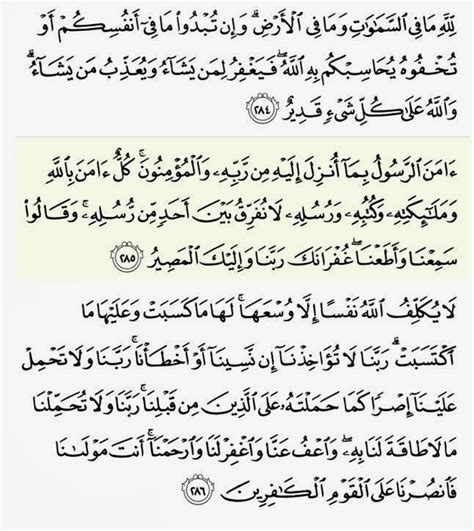 لِّلَّهِ مَا فِي السَّمَٰوَٰتِ وَمَا فِي الْأَرْضِ ۗ وَإِن تُبْدُوا۟ مَا فِىٓ أَنفُسِكُمْ أَوْ
تُخْفُوهُ يُحَاسِبْكُم بِهِ اللَّهُ ۖ فَيَغْفِرُ لِمَن يَشَآءُ وَيُعَذِّبُ مَن يَشَآءُ ۗ
وَاللَّهُ عَلَىٰ كُلِّ شَىْءٍ قَدِيرٌ ٢٨٤
ءَامَنَ الرَّسُولُ بِمَآ أُنزِلَ إِلَيْهِ مِن رَّبِّهِۦ وَالْمُؤْمِنُونَ ۚ كُلٌّ ءَامَنَ بِاللَّهِ
وَمَلَٰٓئِكَتِهِۦ وَكُتُبِهِۦ وَرُسُلِهِۦ لَا نُفَرِّقُ بَيْنَ أَحَدٍ مِّن رُّسُلِهِۦ ۚ وَقَالُوا۟
سَمِعْنَا وَأَطَعْنَا ۖ غُفْرَانَكَ رَبَّنَا وَإِلَيْكَ الْمَصِيرُ ٢٨٥
لَا يُكَلِّفُ اللَّهُ نَفْسًا إِلَّا وُسْعَهَا ۚ لَهَا مَا كَسَبَتْ وَعَلَيْهَا مَا
اكْتَسَبَتْ ۗ رَبَّنَا لَا تُؤَاخِذْنَآ إِن نَّسِينَآ أَوْ أَخْطَأْنَا ۚ رَبَّنَا وَلَا تَحْمِلْ
عَلَيْنَآ إِصْرًا كَمَا حَمَلْتَهُۥ عَلَى الَّذِينَ مِن قَبْلِنَا ۚ رَبَّنَا وَلَا تُحَمِّلْنَا
مَا لَا طَاقَةَ لَنَا بِهِۦ ۖ وَاعْفُ عَنَّا وَاغْفِرْ لَنَا وَارْحَمْنَآ ۚ أَنتَ مَوْلَىٰنَا
فَانصُرْنَا عَلَى الْقَوْمِ الْكَٰفِرِينَ ٢٨٦